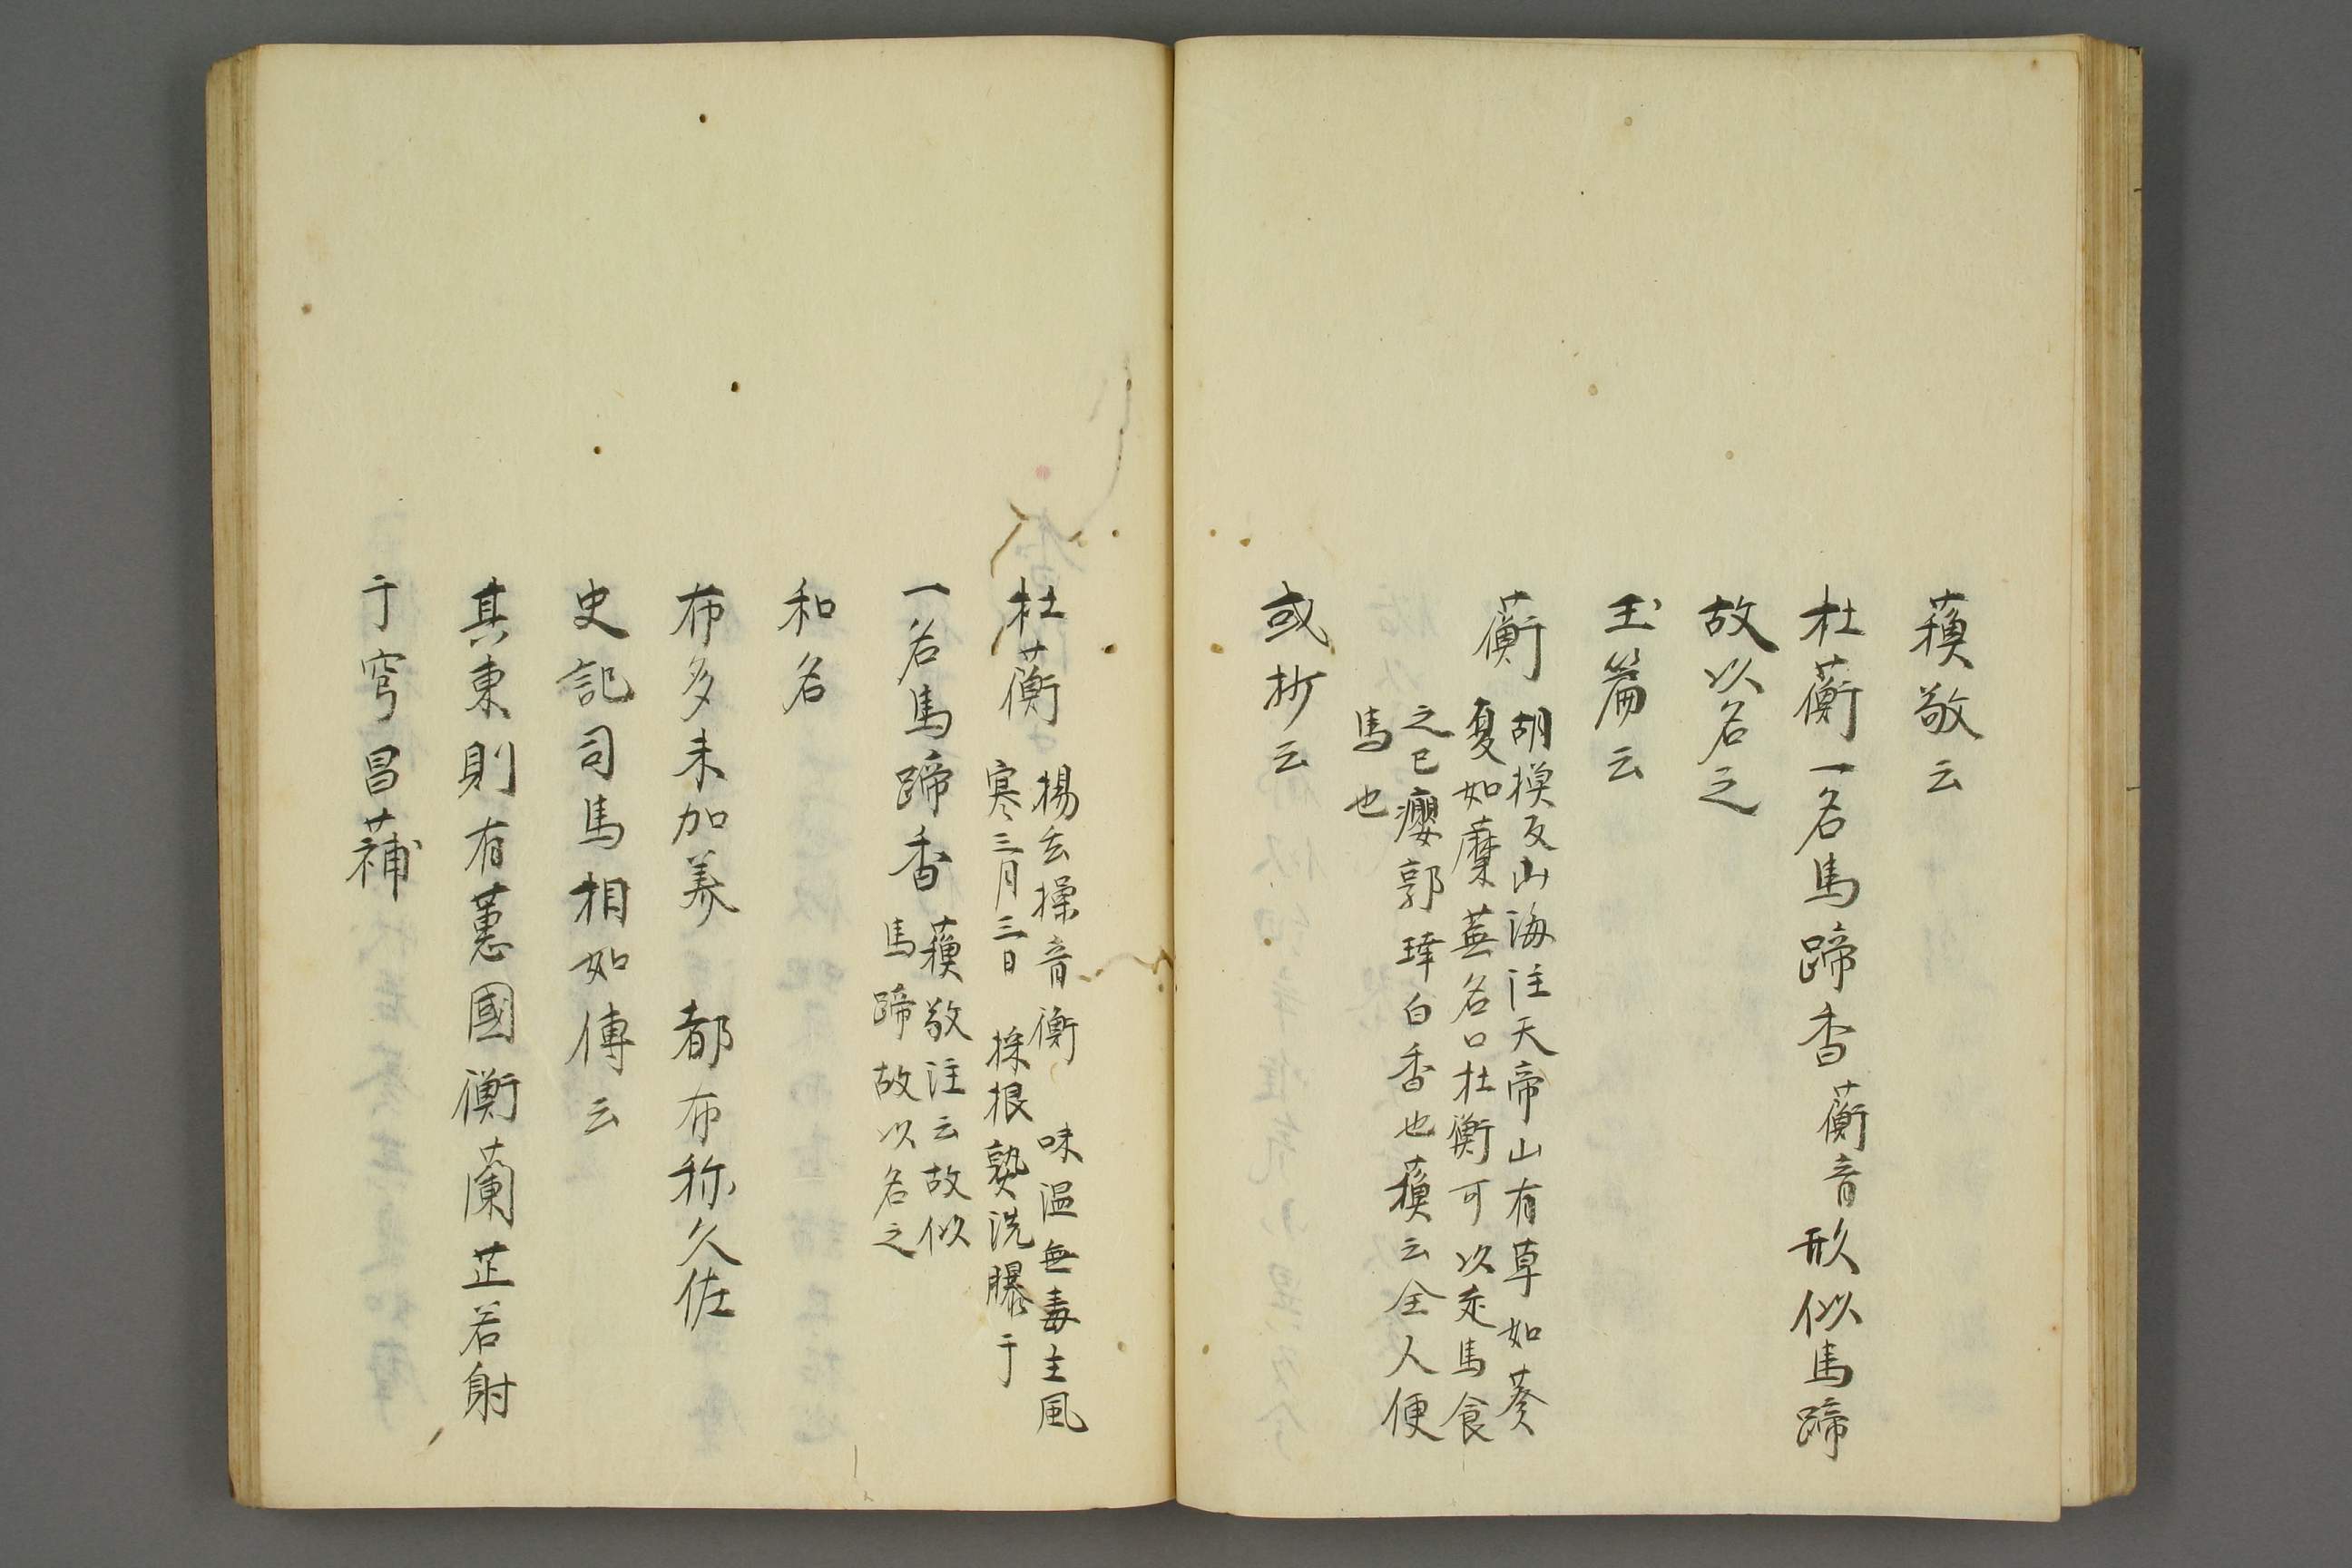 蘓敬云
杜蘅一名馬蹄香蘅音形似馬蹄
故以名之
玉篇云
蘅
胡搷反山海注天帝山有草如葵
臭如蘼蕪名口杜衡可以走馬食
之已癭郭璞白香也蘓云全人便
馬也
或抄云
杜蘅
楊玄操音衡 味温無毒主風
寒三月三日 採根熟洗曝干
一名馬蹄香
蘓敬注云故似
馬蹄故以名之
和名
布多末加美 都布祢久佐
史記司馬相如傳云
其東則有蕙國衡蘭芷若射
于穹昌蒲